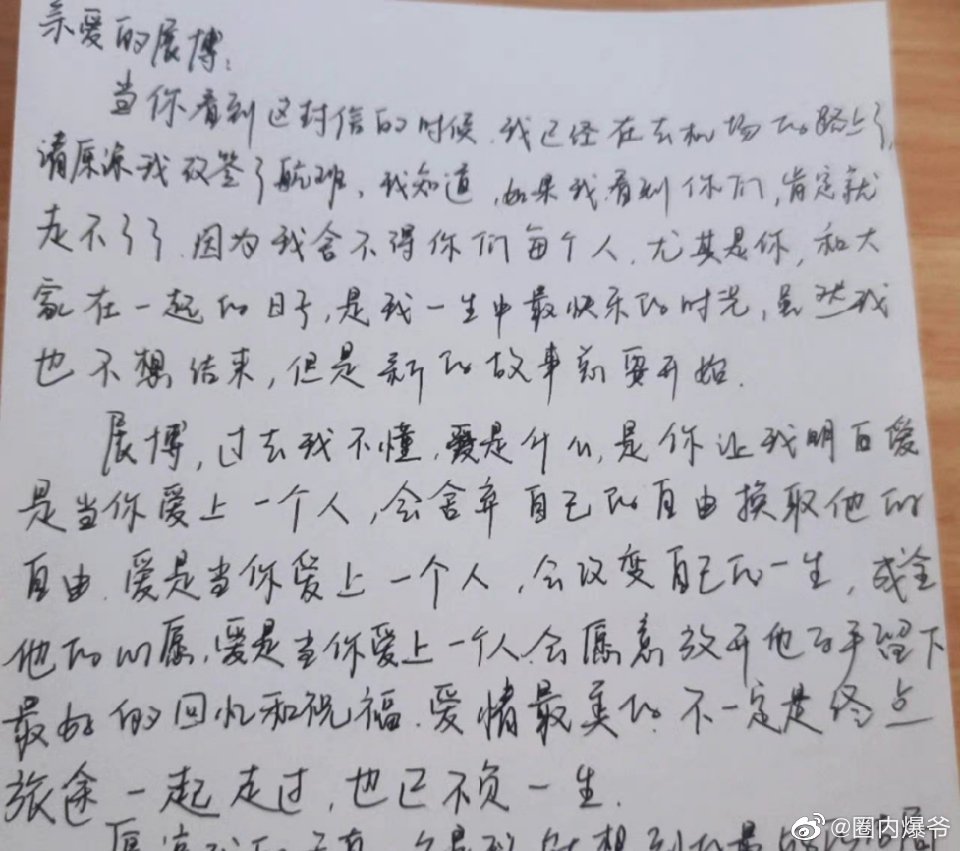 亲爱的展博:
当你看到这封信的时候,我已经在去机场的路上了,
请原谅我改签了航班,我知道,如果我看到你们,肯定就
走不了了,因为我舍不得你们每个人,尤其是你,和大
家在一起的日子,是我一生中最快乐的时光,虽然我
也不想结束,但是新的故事就要开始.
展博,过去我不懂,爱是什么,是你让我明白爱
是当你爱上一个人,会舍弃自己的自由换取他的
自由.爱是当你爱上一个人,会改变自己的一生,成全
他的心愿,爱是当你爱上一个人.会愿意放开他的手留下
最好的回忆和祝福.爱情最美的.不一定是终点
旅途一起走过,也已不负一生.
@圈内爆爷